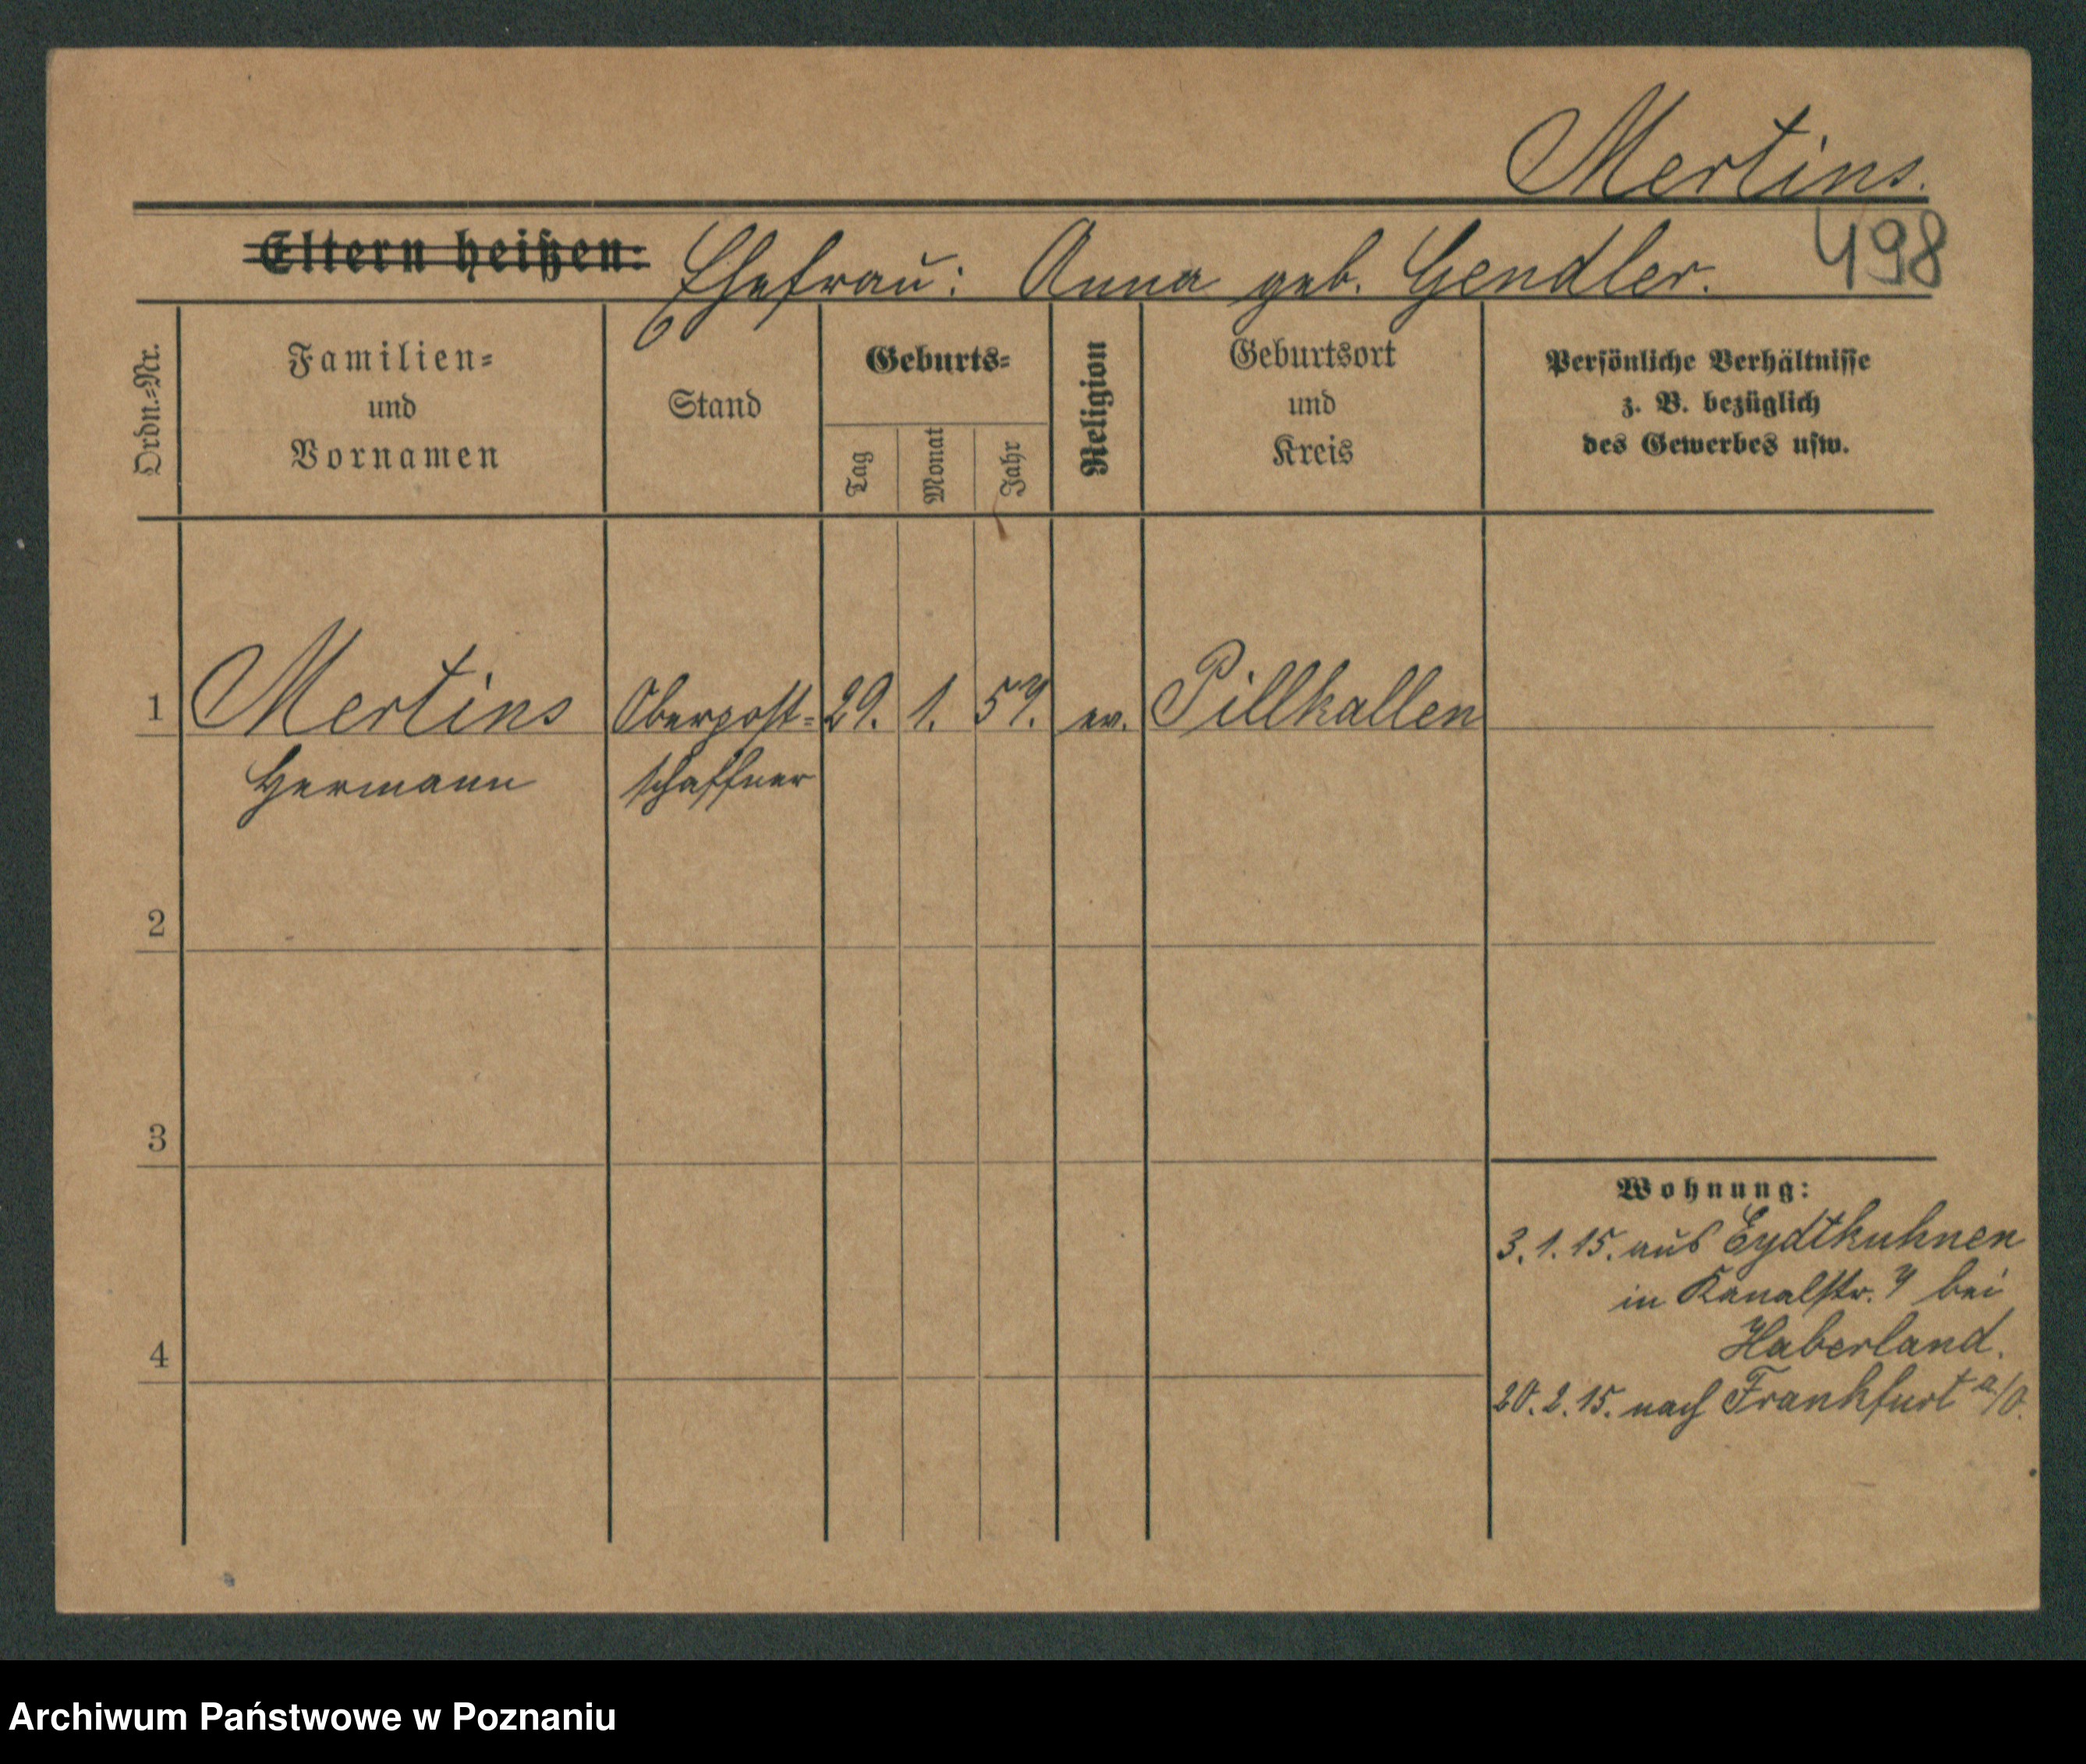 Mertins.
Eltern heißen: Ehefrau: Anna geb. Gendler. 498
Ordn.=Nr.
Familien=
und
Vornamen
Stand
Geburts=
Tag
Monat
Jahr
Religion
Geburtsort
und
Kreis
Persönliche Verhältnisse
z. B. bezüglich
des Gewerbes usw.
1 Mertins Oberpost= 29. 1. 57. ev. Pillkallen
Hermann schaffner
2
3
Wohnung:
3.1.15. aus Eydtkuhnen
in Kanalstr. 7 bei
Haberland.
4
20.2.15. nach Frankfurt a/O.
Archiwum Państwowe w Poznaniu